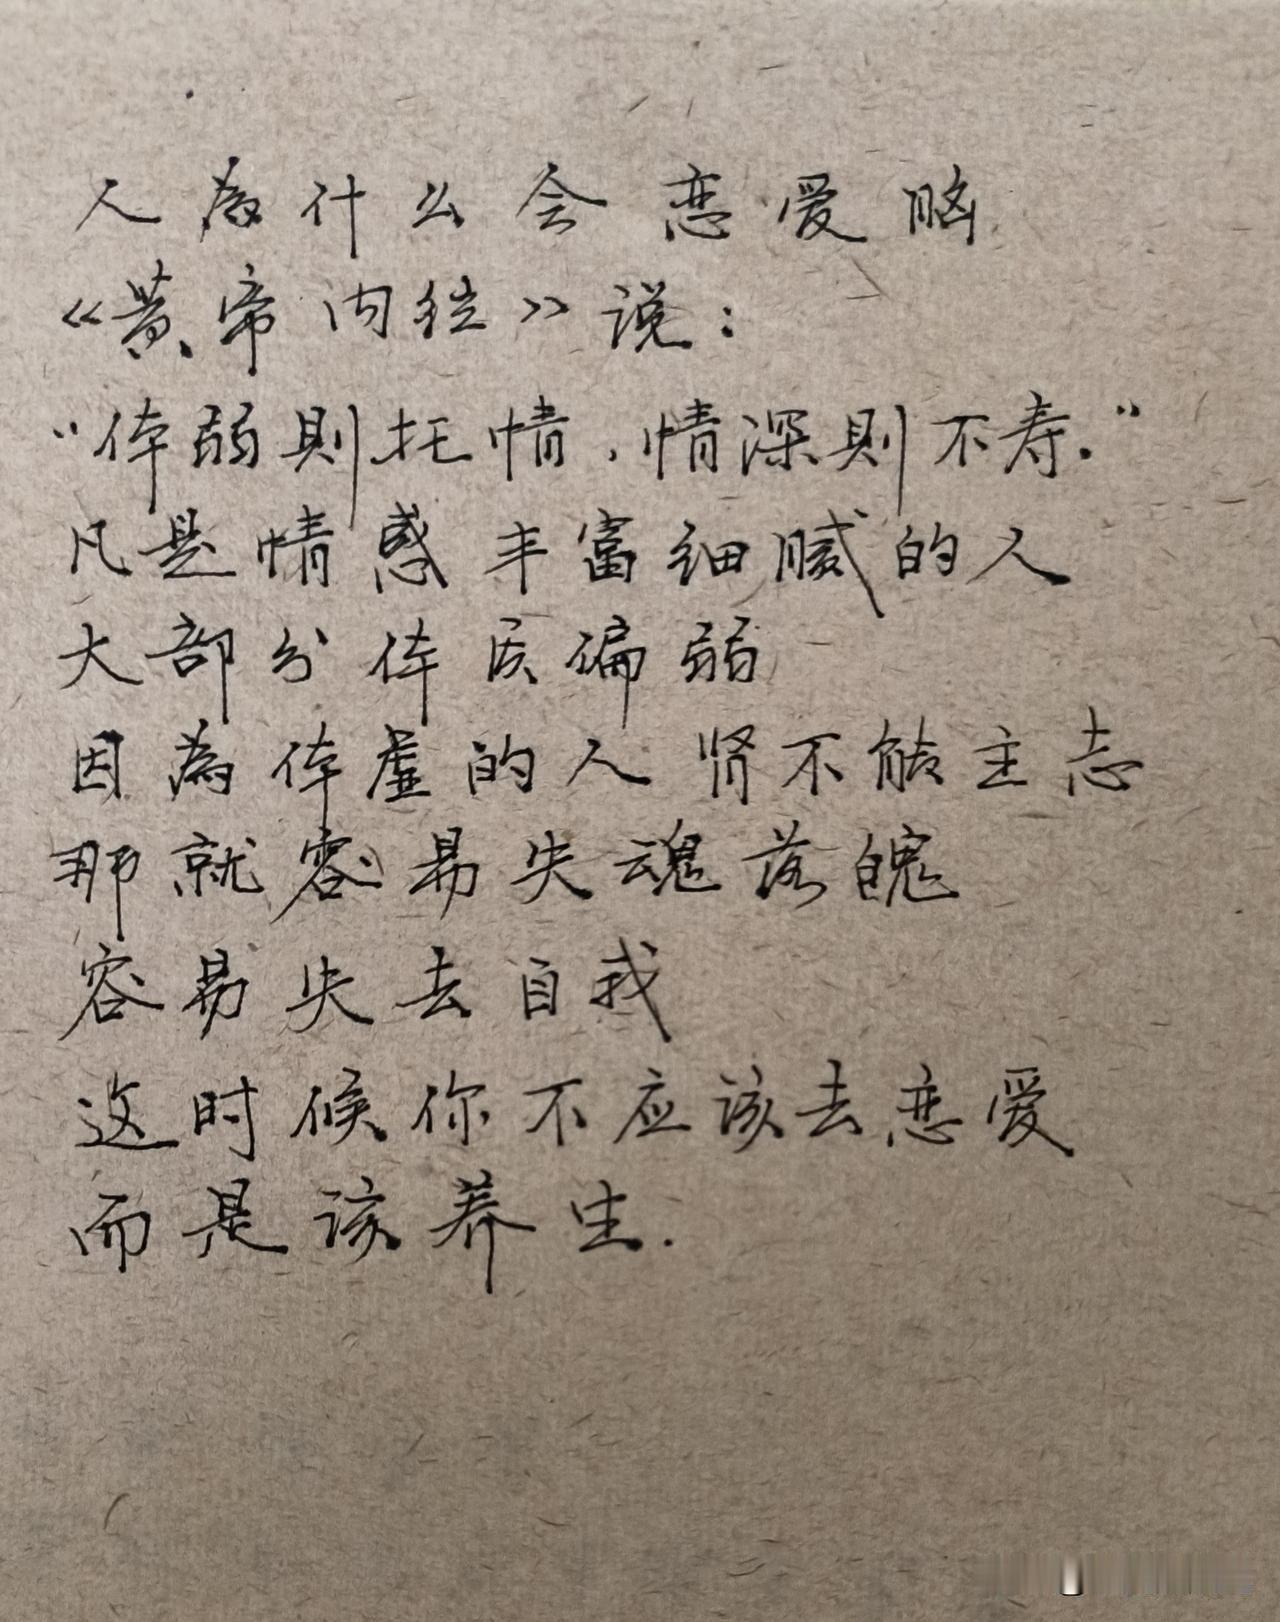 人為什么会恋爱脑
《黄帝内经》说：
“体弱則托情，情深則不寿.”
凡是情感丰富细腻的人
大部分体质偏弱
因為体虚的人肾不能主志
那就容易失魂落魄
容易失去自我
这时候你不应该去恋爱
而是该养生.